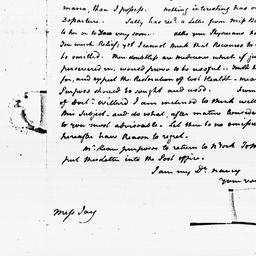 mania, than I possess. Nothing interesting has
Departure. Sally has recd. a Letter from Miss
to her or to you very soon. altho your Physicians
You much Relief; yet I cannot think that Recourse to
be omitted. There doubtless are medicines which if
persevered in, would prove to be useful.
for, and expect the Restoration of Health
Purpose should be sought and used.
of Docr. Willard I am inclined to think well
this Subject. and do what, after mature
to you most adviseable. Let there be no omission
hereafter have Reason to regret.
Mr. Ross purposes to return to N York
put this Letter into the Post office.
I am my Dr. Nancy
Your
Miss Jay